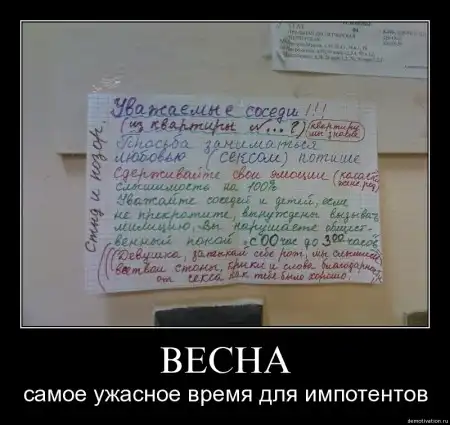 Стыд и позор.
Уважаемые соседи!!!
(из квартиры №...?) (квартиру мы знаем
Просьба заниматься
любовью (сексом) потише
Сдерживайте свои эмоции
слышимость на 100%
Уважайте соседей и детей, если
не прекратите, вынуждены вызывать
милицию. Вы нарушаете общест-
венный покой с 00 час до 3 00 часов
(Девушка, затыкай себе рот, мы слышим
все твои стоны, крики и слова благодарности
от секса как тебе было хорошо!
ВЕСНА
самое ужасное время для импотентов
demotivation.ru